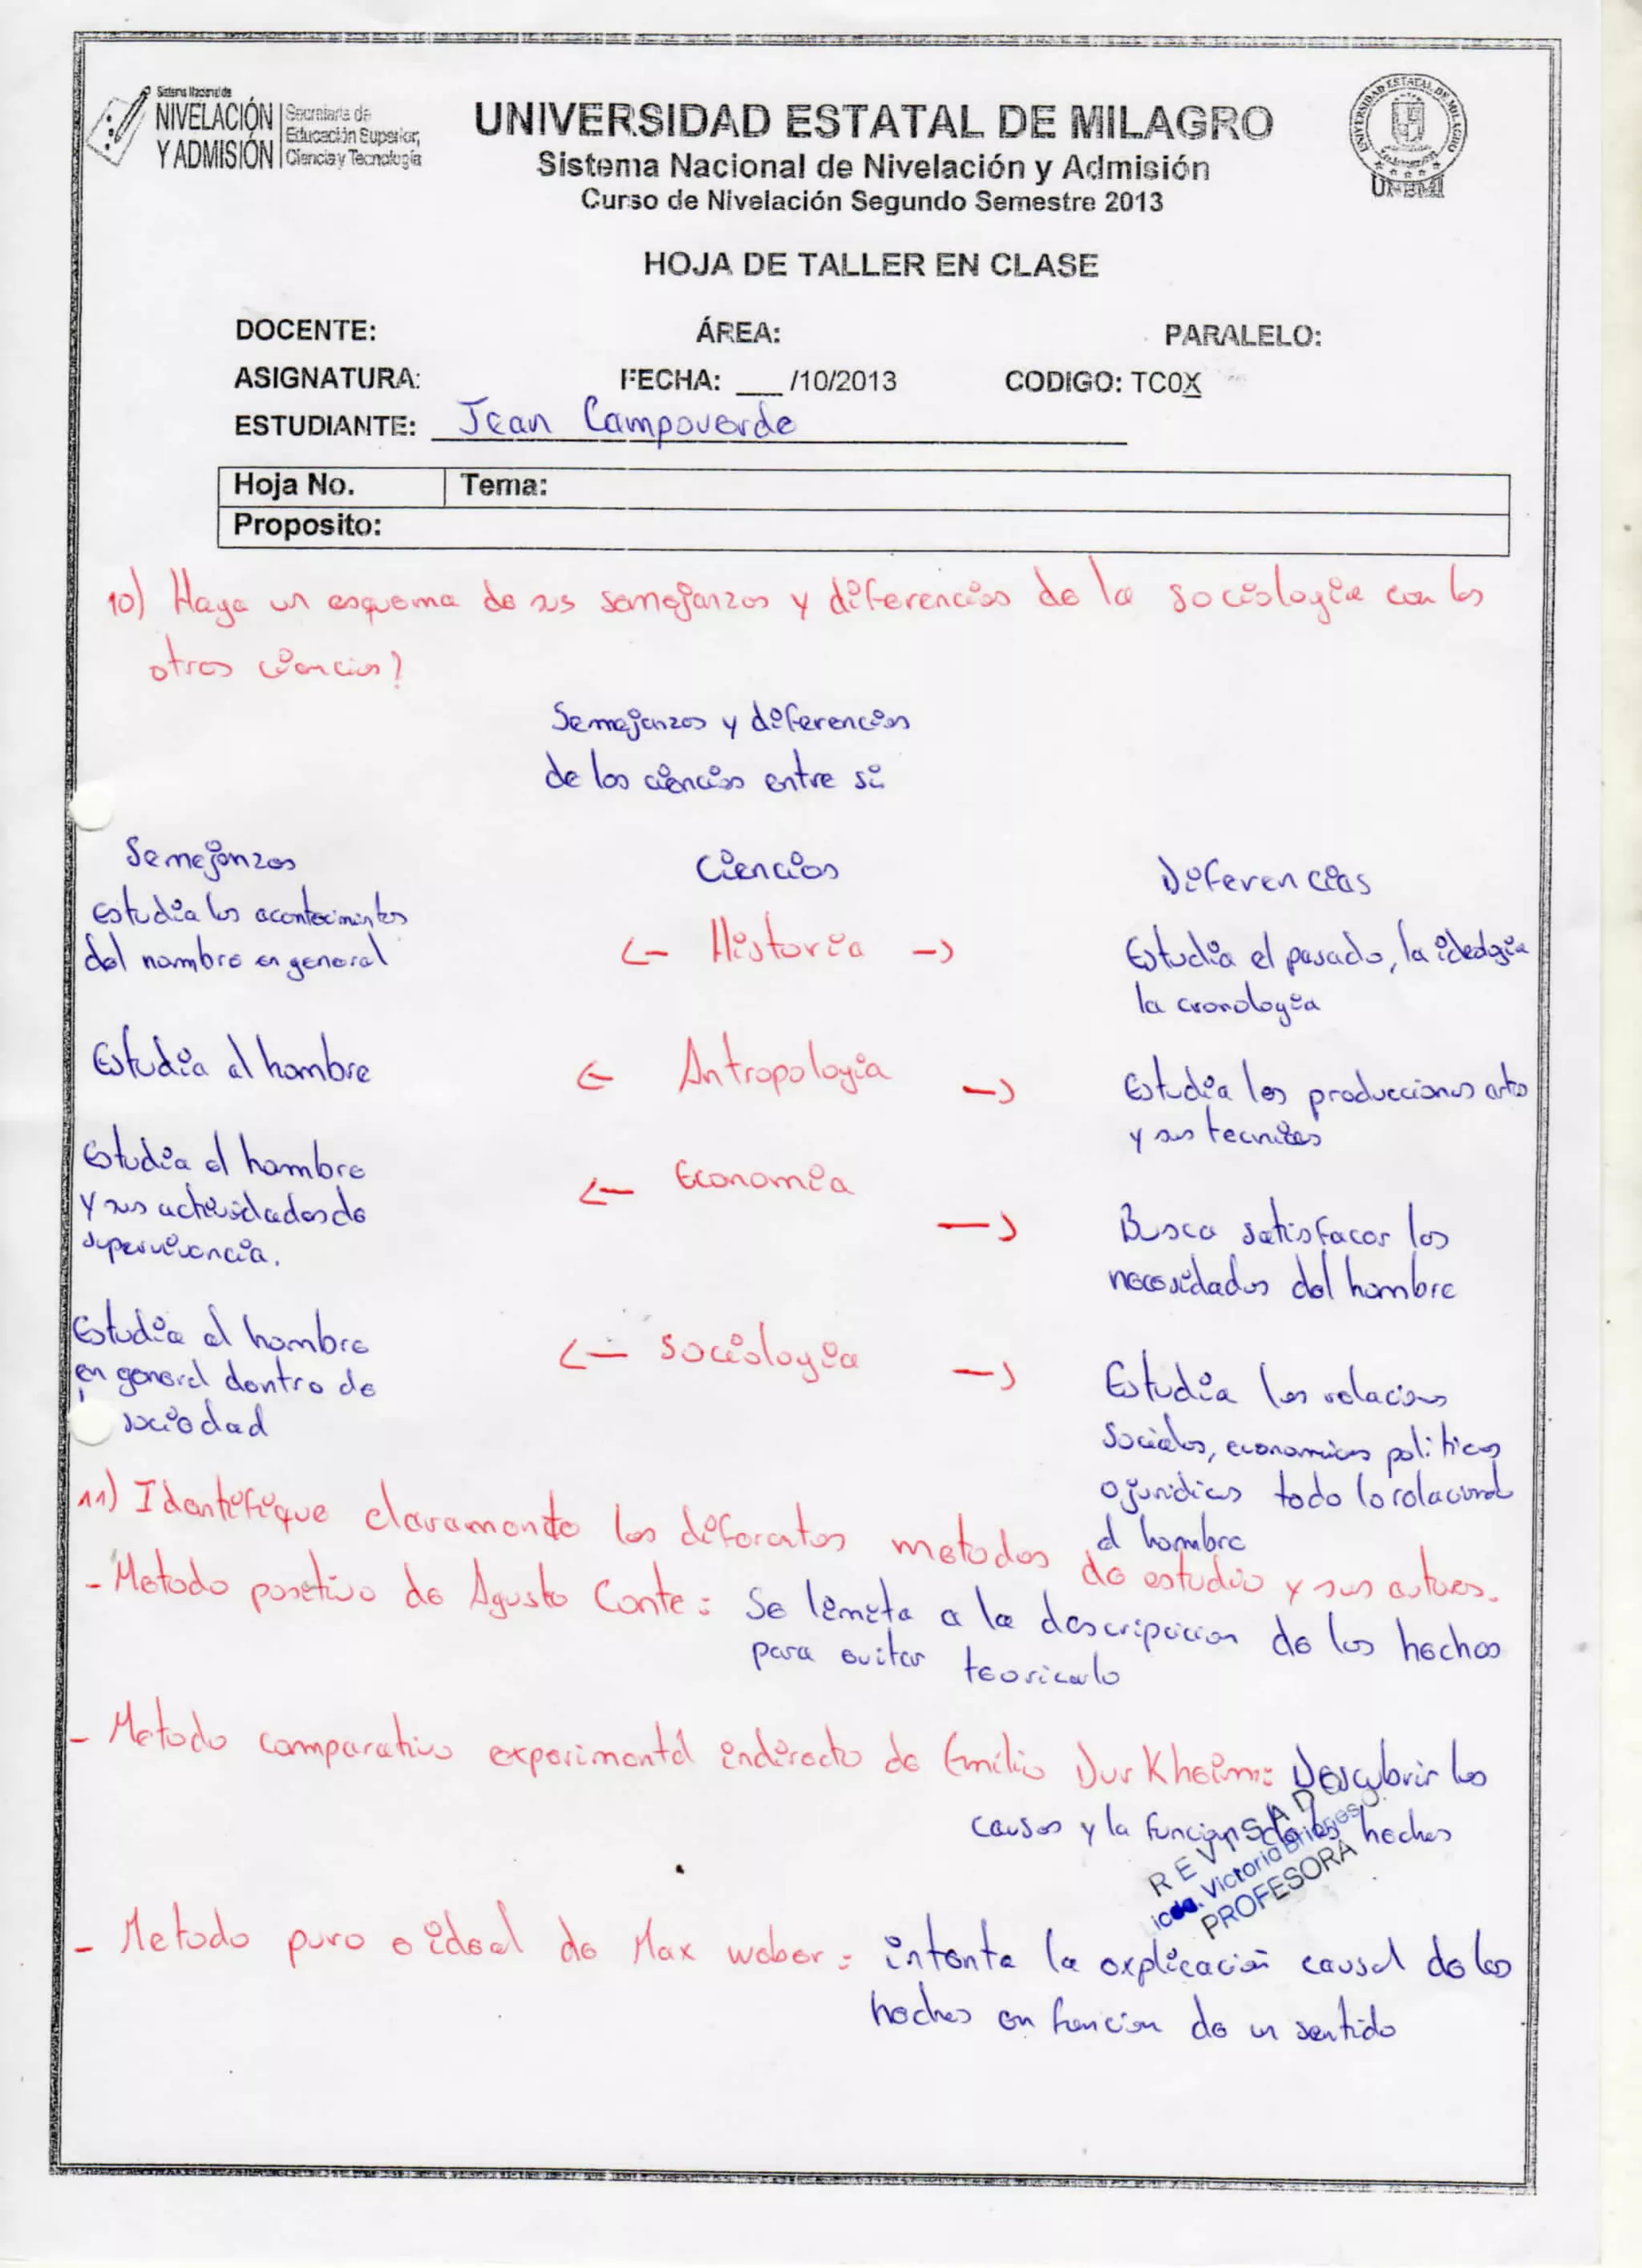 Sistema Nacional de
NIVELACIÓN
Y ADMISIÓN
Secretaría de
Educación Superior,
Ciencia y Tecnología
UNIVERSIDAD ESTATAL DE MILAGRO
Sistema Nacional de Nivelación y Admisión
Curso de Nivelación Segundo Semestre 2013
UNIVERSIDAD ESTATAL DE MILAGRO
UNEMI
HOJA DE TALLER EN CLASE
DOCENTE: ÁREA: PARALELO:
ASIGNATURA: FECHA: ___ /10/2013 CODIGO: TC0X
ESTUDIANTE: Jean Campoverde
Hoja No. Tema:
Proposito:
10) Haga un esquema de sus semejanzas y diferencias de la sociologia con las
otras ciencias?
Semejanzas y diferencias
de las ciencias entre si
Semejanzas Ciencias Diferencias
Estudia los acontecimientos
del nombre en general
<- Historia ->
Estudia el pasado, la ideologia
la cronologia
Estudia al hombre
<- Antropologia ->
Estudia las producciones arte
y sus tecnicas
Estudia el hombre
y sus actividades de
supervivencia.
<- Economia ->
Busca satisfacer las
necesidades del hombre
Estudia al hombre
en general dentro de
sociedad
<- Sociologia ->
Estudia las relaciones
Sociales, economicas politicas
o juridicas todo lo relacional
al hombre
11) Identifique claramente los diferentes metodos de estudio y sus autores.
- Metodo positivo de Agusto Conte: Se limita a la descripcion de los hechos
para evitar teorizarlo
- Metodo comparativo experimental indirecto de Emilio Durkheim: Descubrir las
causas y la funcion de los hechos
REVISADO
Lcda. Victoria Briones J.
PROFESORA
- Metodo puro o ideal de Max weber: intenta la explicación causal de los
hechos en funcion de un sentido